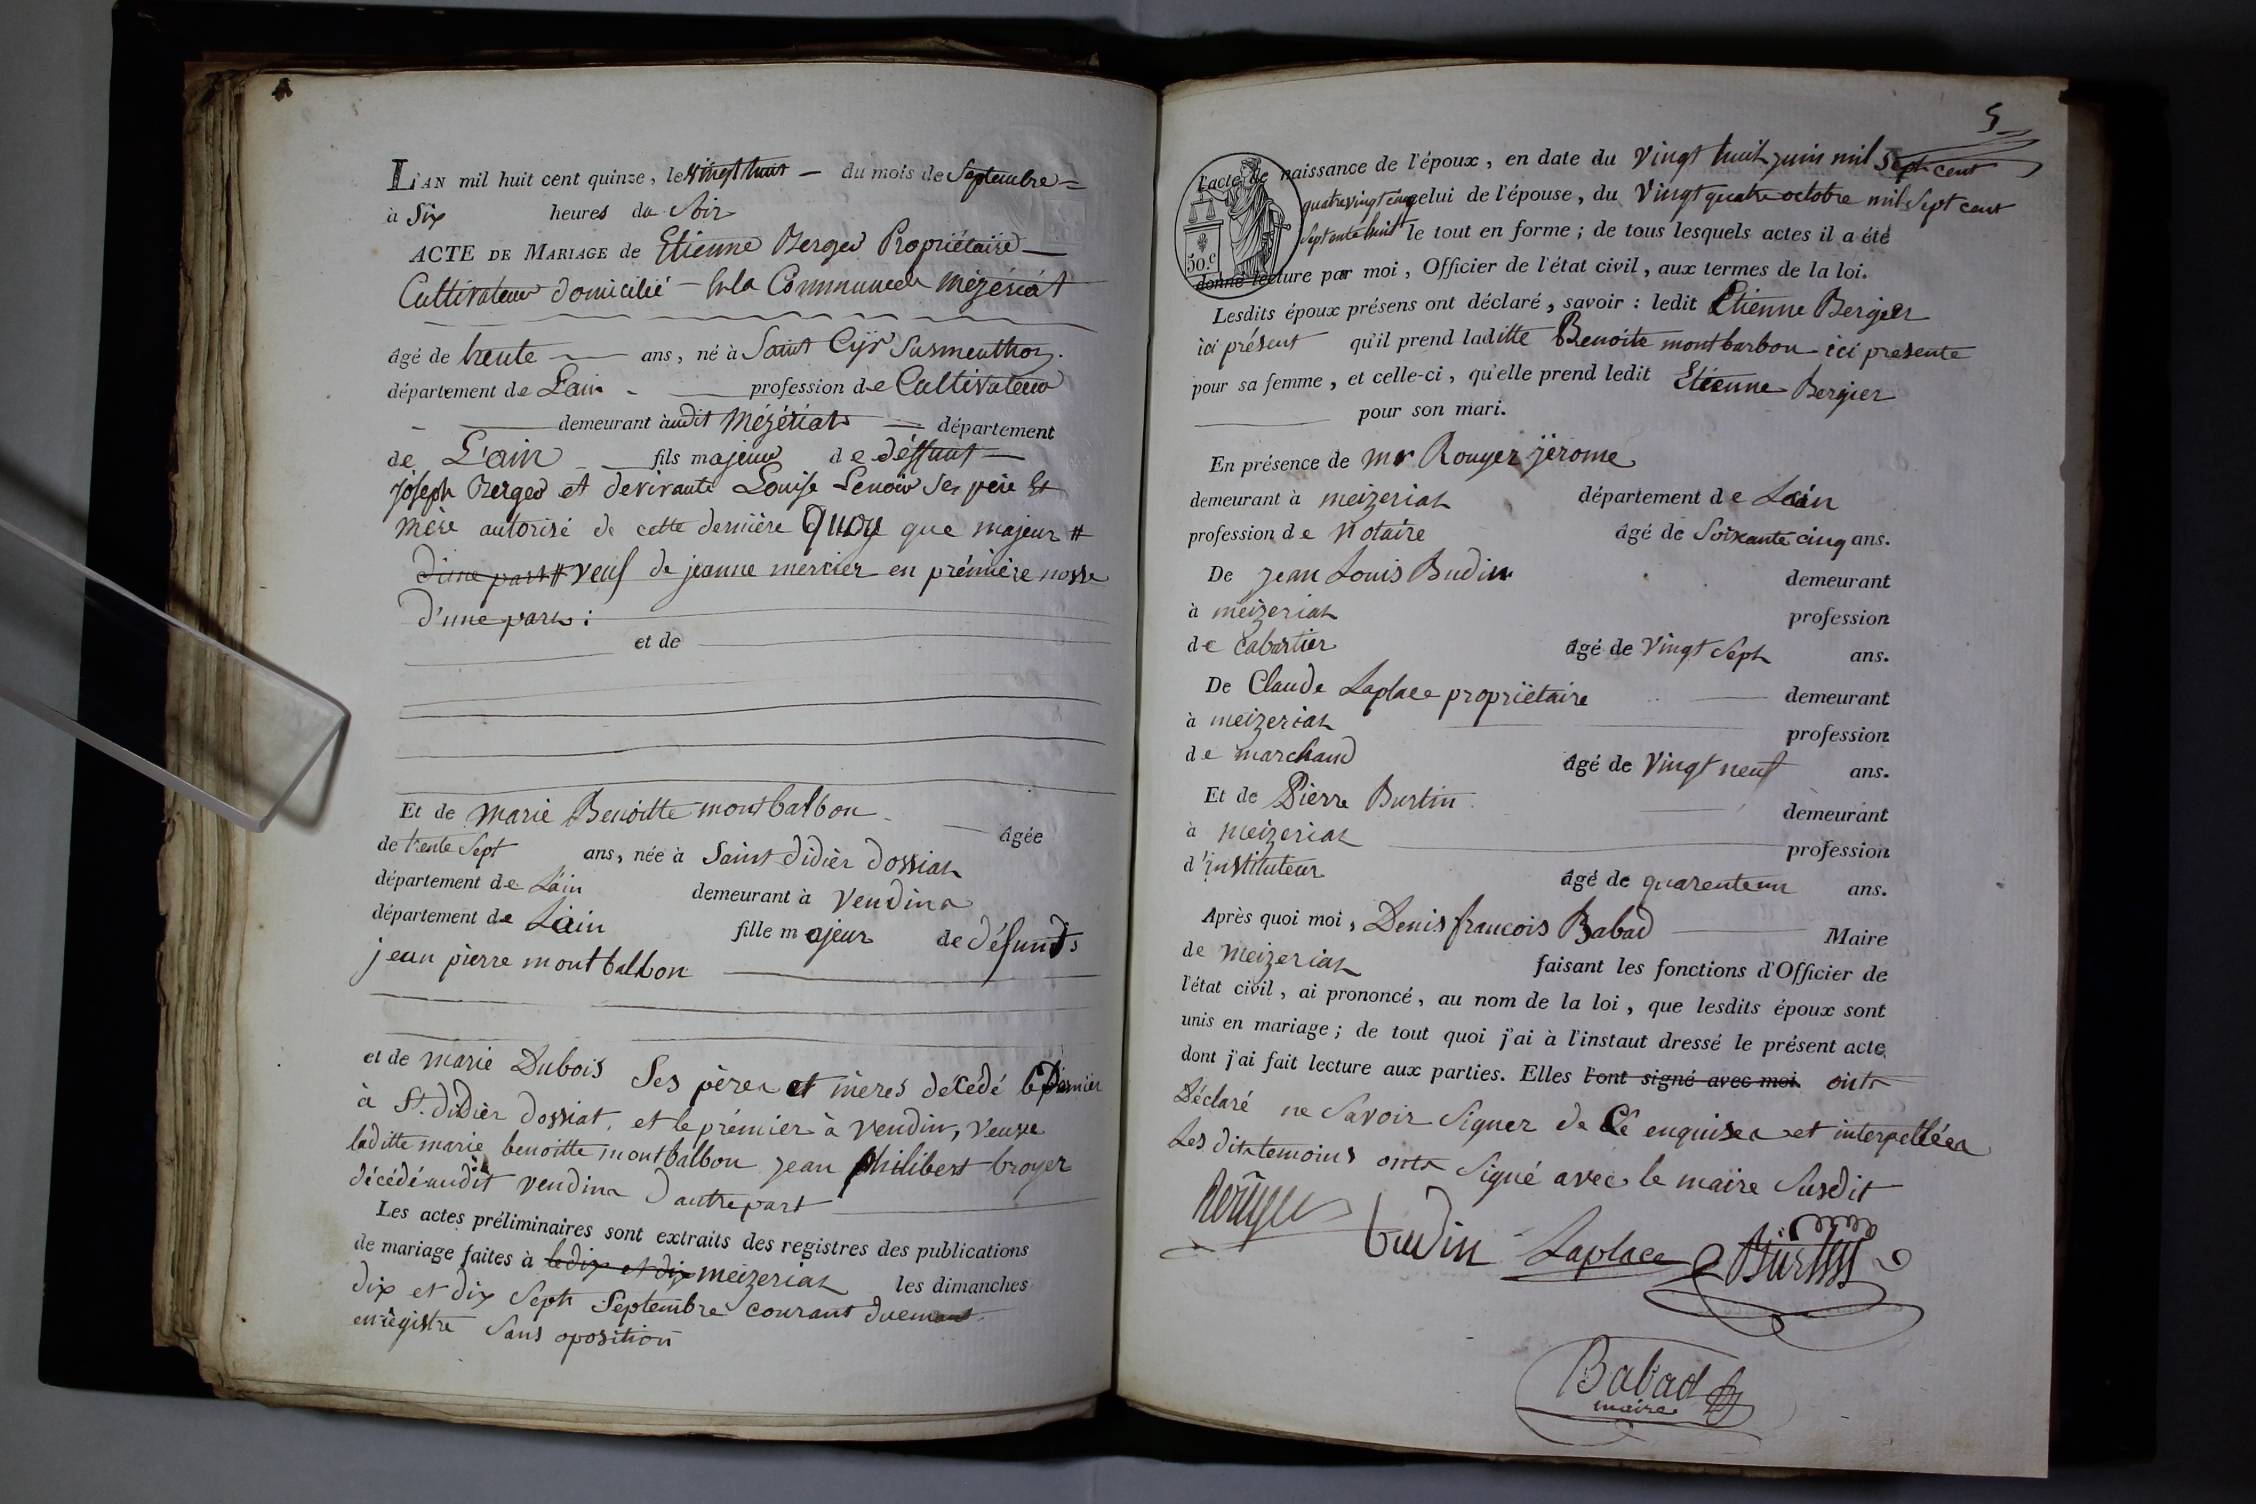 L'AN mil huit cent quinze, le vingt huit du mois de Septembre
à Six heures du Soir
ACTE DE MARIAGE de Etienne Berger Propriétaire
Cultivateur domicilié en la Commune de Mézériat
âgé de trente ans, né à Saint Cyr Susmenthon
département de L'ain profession de Cultivateur
demeurant audit Mézériat département
de L'ain fils majeur de déffunt
joseph Berger et de vivante Louise Lenoir Ses père Et
mère autorisé de cette dernière quoy que majeur #
d'une part # veuf de jeanne mercier en prémière nosse
D'une part :
et de
Et de marie Benoitte montbalbon âgée
de trente Sept ans, née à Saint didier dossiat
département de L'ain demeurant à Vendina
département de L'ain fille majeur de défunts
jean pierre montbalbon
et de marie Dubois Ses pères et mères décédé le dernier
à St. didier Dossiat, et le prémier à Vendin, Veuve
laditte marie benoitte montbalbon jean philibert broyer
décédé audit vendina D'autre part
Les actes préliminaires sont extraits des registres des publications
de mariage faites à le dix et dix meizeriat les dimanches
dix et dix Sept Septembre courant duement
enrégistré Sans oposition
5
l'acte de naissance de l'époux, en date du vingt huit juin mil Sept cent
quatrevingt cinq celui de l'épouse, du Vingt quatre octobre mil Sept cent
Septante huit le tout en forme ; de tous lesquels actes il a été
50.c
donné lecture par moi, Officier de l'état civil, aux termes de la loi.
Lesdits époux présens ont déclaré, savoir : ledit Etienne Bergier
ici présent qu'il prend laditte Benoite montbarbon ici presente
pour sa femme, et celle-ci, qu'elle prend ledit Etienne Bergier
pour son mari.
En présence de mr Rouyer jérome
demeurant à meizeriat département de Lain
profession de Notaire âgé de Soixante cinq ans.
De jean Louis Budin demeurant
à meizeriat profession
de Cabartier âgé de Vingt Sept ans.
De Claude Laplace propriëtaire demeurant
à meizeriat profession
de marchand âgé de Vingt neuf ans.
Et de Pierre Burtin demeurant
à meizeriat profession
d'instituteur âgé de quarente un ans.
Après quoi moi, Denis francois Babad Maire
de meizeriat faisant les fonctions d'Officier de
l'état civil, ai prononcé, au nom de la loi, que lesdits époux sont
unis en mariage ; de tout quoi j'ai à l'instaut dressé le présent acte
dont j'ai fait lecture aux parties. Elles l'ont signé avec moi ont
Déclaré ne Savoir Signer de Ce enquises et interpellées
Les dits temoins ont Signé avec le maire Susdit
Rouyer
budin Laplace Bürtin
Babad
maire